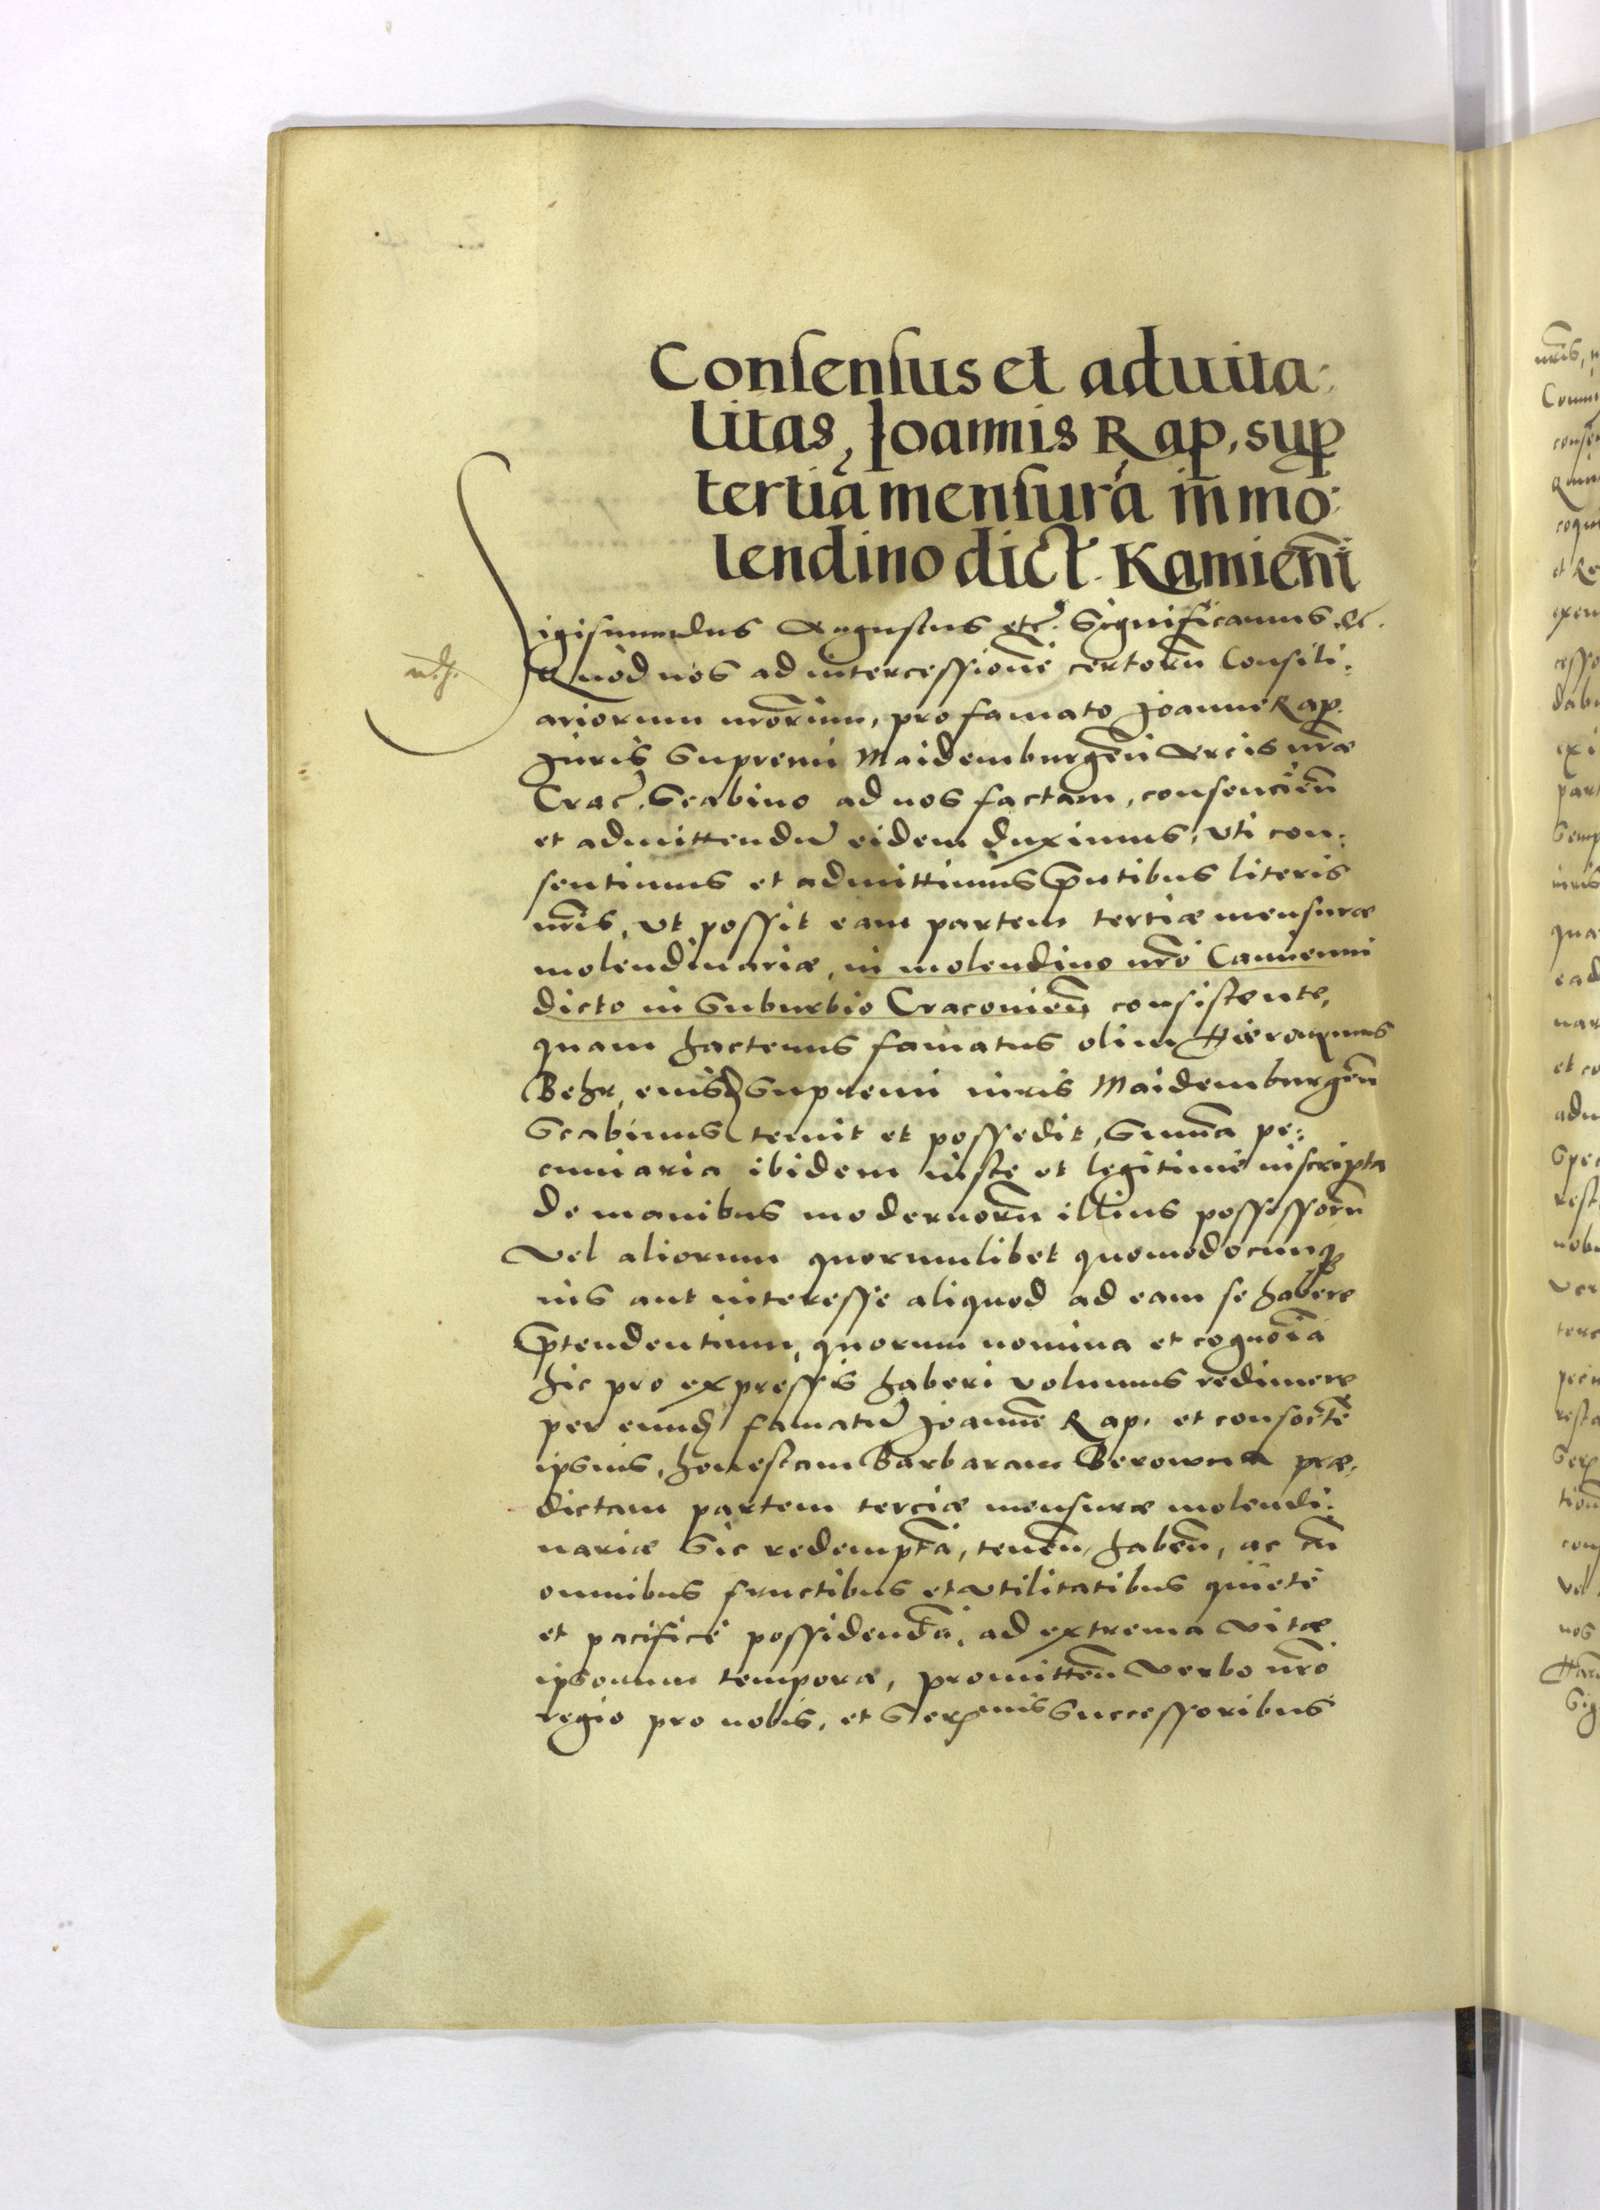 Consensus et aduita:
litas, Joannis Rap. sup
tertiã mensurã in mo:
lendino dict. Kamieñi
Sigismundus Augustus etc. Significamus &c.
Quod nos ad intercessionẽ certorũ Consili:
ariorum nr̃orum, pro famato Joanne Rap.
Juris Supremi Maidemburgeñ Arcis nr̃æ
Crac. Scabino ad nos factam, consencieñ
et admittendũ eidem duximus, vti con:
sentimus et admittimus p̃ntibus literis
nr̃is, vt possit eam partem tertiæ mensuræ
molendinariæ, in molendino nr̃o Camienni
dicto in Suburbio Cracovieñ consistente,
quam hactenus famatus olim Hieronymus
Behr, eiusd Supremi iuris Maidemburgeñ
Scabinus tenuit et possedit, Sum̃a pe:
cuniaria ibidem iuste et legitime inscripta
de manibus modernorũ illius possessorũ
Vel aliorum quorumlibet quomodocunq
ius aut interesse aliquod ad eam se habere
p̃tendentium, quorum nomina et cognoĩa
hic pro expressis haberi volumus redimere
per eund famatũ Joannẽ Rap. et consortẽ
ipsius, honestam Barbaram Berowna præ:
dictam partem terciæ mensuræ molendi:
nariæ Sic redemptã, teneñ, habeñ, ac cũ
omnibus fructibus et vtilitatibus quietè
et pacificè possidendã, ad extrema vitæ
ipsorum tempora, promitteñ Verbo nr̃o
regio pro nobis, et Serenis Successoribus